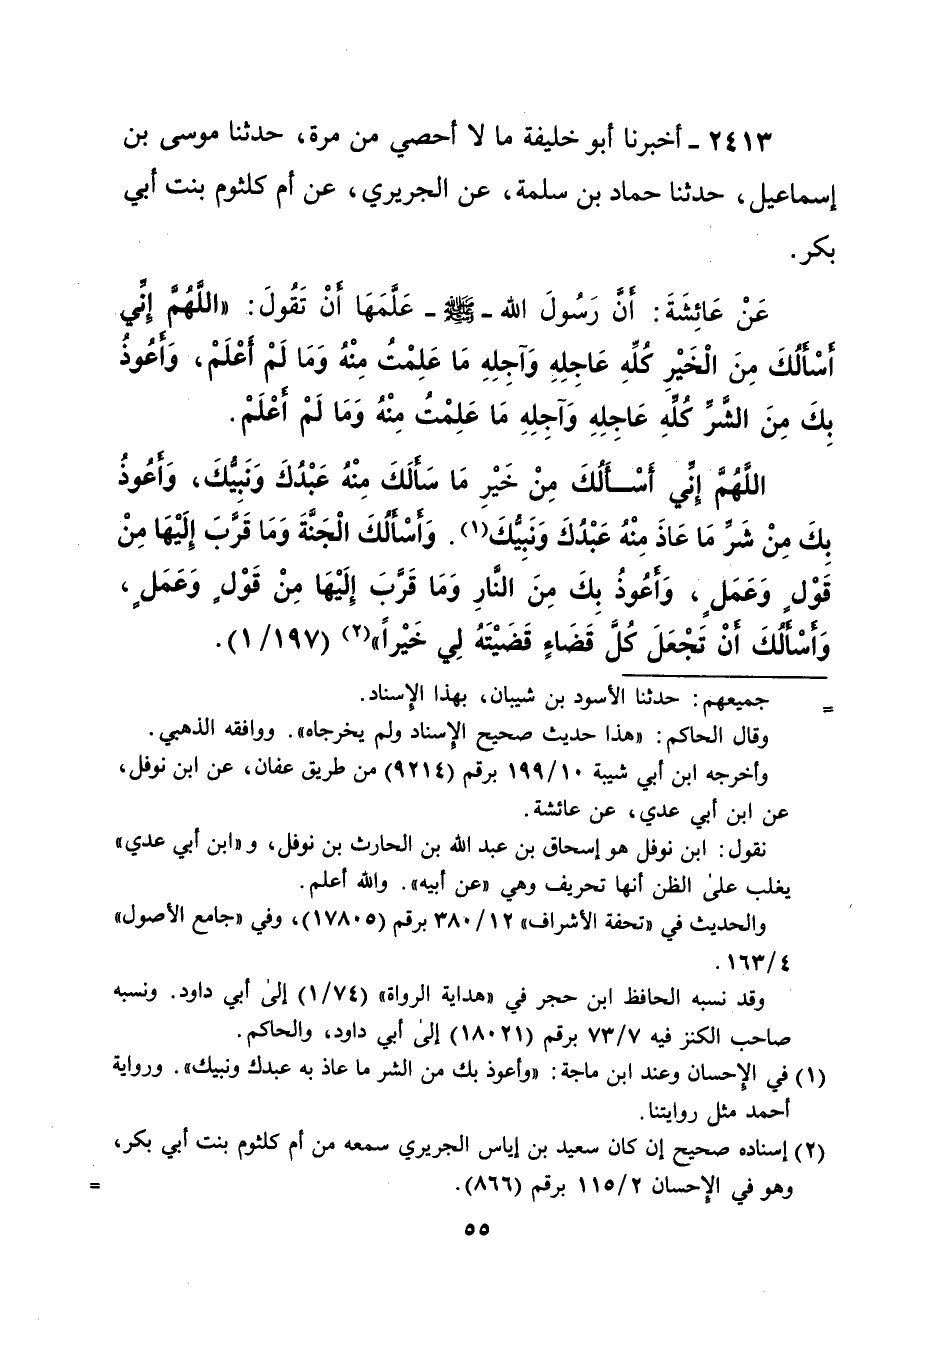 ٢٤١٣ - أخبرنا أبو خليفة ما لا أحصي من مرة، حدثنا موسى بن
إسماعيل، حدثنا حماد بن سلمة، عن الجريري، عن أم كلثوم بنت أبي
بكر.
عَنْ عَائِشَةَ: أَنَّ رَسُولَ الله - ﷺ - عَلَّمَهَا أَنْ تَقُولَ: «اللَّهُمَّ إِنِّي
أَسْأَلُكَ مِنَ الْخَيْرِ كُلِّهِ عَاجِلِهِ وَآجِلِهِ مَا عَلِمْتُ مِنْهُ وَمَا لَمْ أَعْلَمْ، وَأَعُوذُ
بِكَ مِنَ الشَّرِّ كُلِّهِ عَاجِلِهِ وَآجِلِهِ مَا عَلِمْتُ مِنْهُ وَمَا لَمْ أَعْلَمْ.
اللَّهُمَّ إِنِّي أَسْـأَلُكَ مِنْ خَيْرِ مَا سَأَلَكَ مِنْهُ عَبْدُكَ وَنَبِيُّكَ، وَأَعُوذُ
بِكَ مِنْ شَرِّ مَا عَاذَ مِنْهُ عَبْدُكَ وَنَبِيُّكَ(١). وَأَسْأَلُكَ الْجَنَّةَ وَمَا قَرَّبَ إِلَيْهَا مِنْ
قَوْلٍ وَعَمَلٍ، وَأَعُوذُ بِكَ مِنَ النَّارِ وَمَا قَرَّبَ إِلَيْهَا مِنْ قَوْلٍ وَعَمَلٍ،
وَأَسْأَلُكَ أَنْ تَجْعَلَ كُلَّ قَضَاءٍ قَضَيْتَهُ لِي خَيْراً»(٢) (١/١٩٧).
= جميعهم: حدثنا الأسود بن شيبان، بهذا الإسناد.
وقال الحاكم: «هذا حديث صحيح الإسناد ولم يخرجاه». ووافقه الذهبي.
وأخرجه ابن أبي شيبة ١٩٩/١٠ برقم (٩٢١٤) من طريق عفان، عن ابن نوفل،
عن ابن أبي عدي، عن عائشة.
نقول: ابن نوفل هو إسحاق بن عبد الله بن الحارث بن نوفل، و«ابن أبي عدي»
يغلب علىٰ الظن أنها تحريف وهي «عن أبيه». والله أعلم.
والحديث في «تحفة الأشراف» ٣٨٠/١٢ برقم (١٧٨٠٥)، وفي «جامع الأصول»
١٦٣/٤.
وقد نسبه الحافظ ابن حجر في «هداية الرواة» (١/٧٤) إلىٰ أبي داود. ونسبه
صاحب الكنز فيه ٧٣/٧ برقم (١٨٠٢١) إلىٰ أبي داود، والحاكم.
(١) في الإحسان وعند ابن ماجة: «وأعوذ بك من الشر ما عاذ به عبدك ونبيك». ورواية
أحمد مثل روايتنا.
(٢) إسناده صحيح إن كان سعيد بن إياس الجريري سمعه من أم كلثوم بنت أبي بكر،
وهو في الإحسان ١١٥/٢ برقم (٨٦٦). =
٥٥